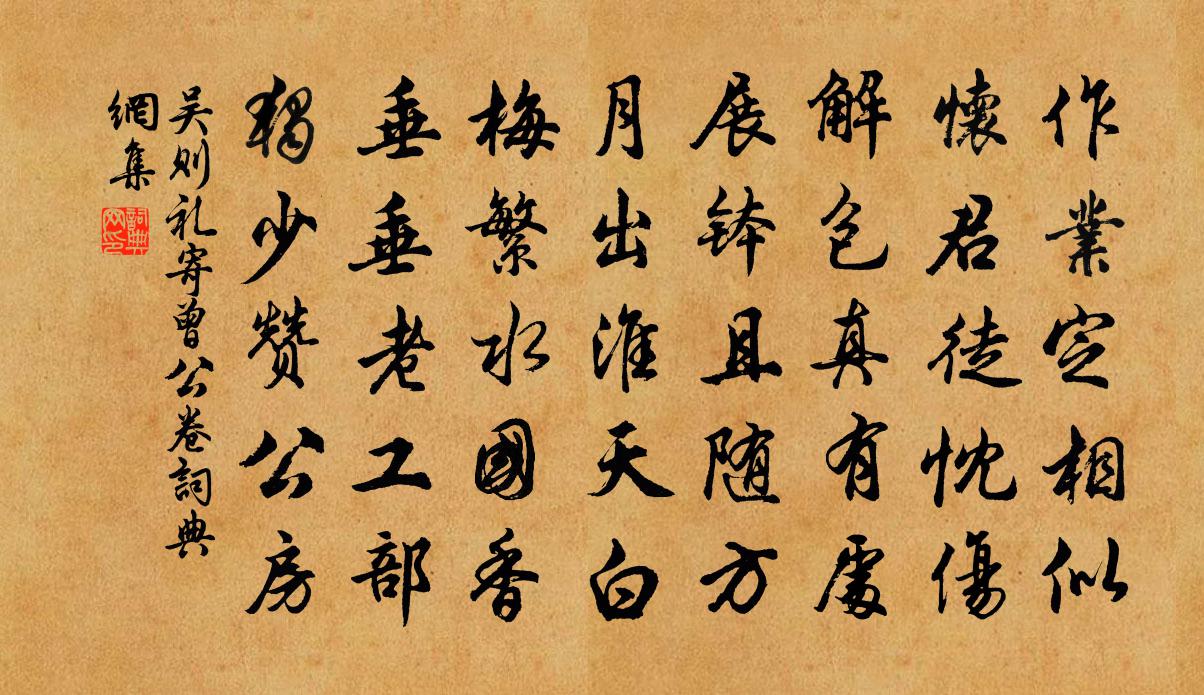 作業定相似
懷君徒忱傷
解包真有處
展鉢且随方
月出淮天白
梅繁水國香
垂垂老工部
獨少贊公房
吴则礼寄曾公卷詞典
網集
詞典網印